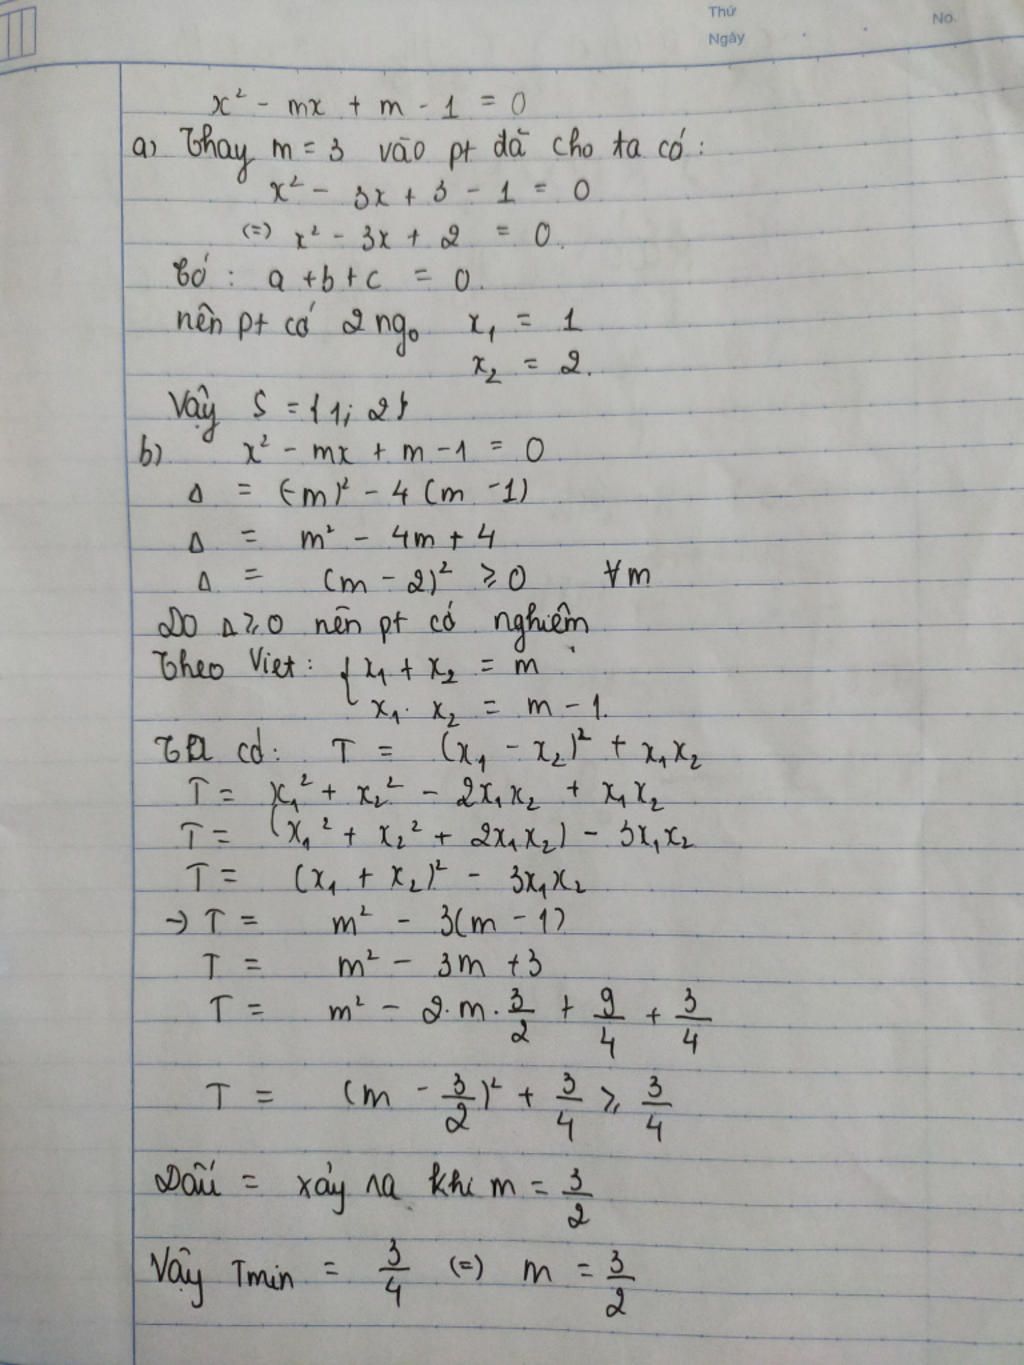 Thứ
No.
Ngày
x² - mx + m - 1 = 0
a) Thay m = 3 vào pt đã cho ta có:
x² - 3x + 3 - 1 = 0
(=) x² - 3x + 2 = 0.
Có: a + b + c = 0.
nên pt có 2 ngo x₁ = 1
x₂ = 2.
Vậy S = {1; 2}
b) x² - mx + m - 1 = 0
Δ = (-m)² - 4 (m - 1)
Δ = m² - 4m + 4
Δ = (m - 2)² ≥ 0 ∀m
Do Δ ≥ 0 nên pt có nghiệm
Theo Viet: { x₁ + x₂ = m
x₁. x₂ = m - 1.
Ta có: T = (x₁ - x₂)² + x₁x₂
T = x₁² + x₂² - 2x₁x₂ + x₁x₂
T = (x₁² + x₂² + 2x₁x₂) - 3x₁x₂
T = (x₁ + x₂)² - 3x₁x₂
→ T = m² - 3(m - 1)
T = m² - 3m + 3
T = m² - 2.m.3/2 + 9/4 + 3/4
T = (m - 3/2)² + 3/4 ≥ 3/4
Dấu = xảy ra khi m = 3/2
Vậy Tmin = 3/4 (=) m = 3/2